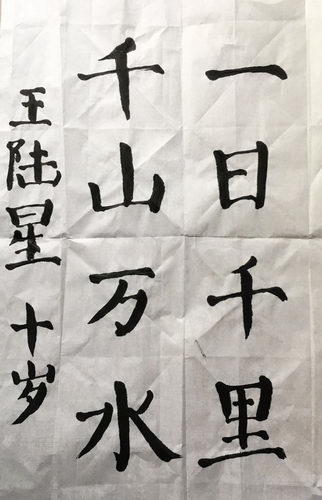 一日千里
千山万水
王陆星 十岁